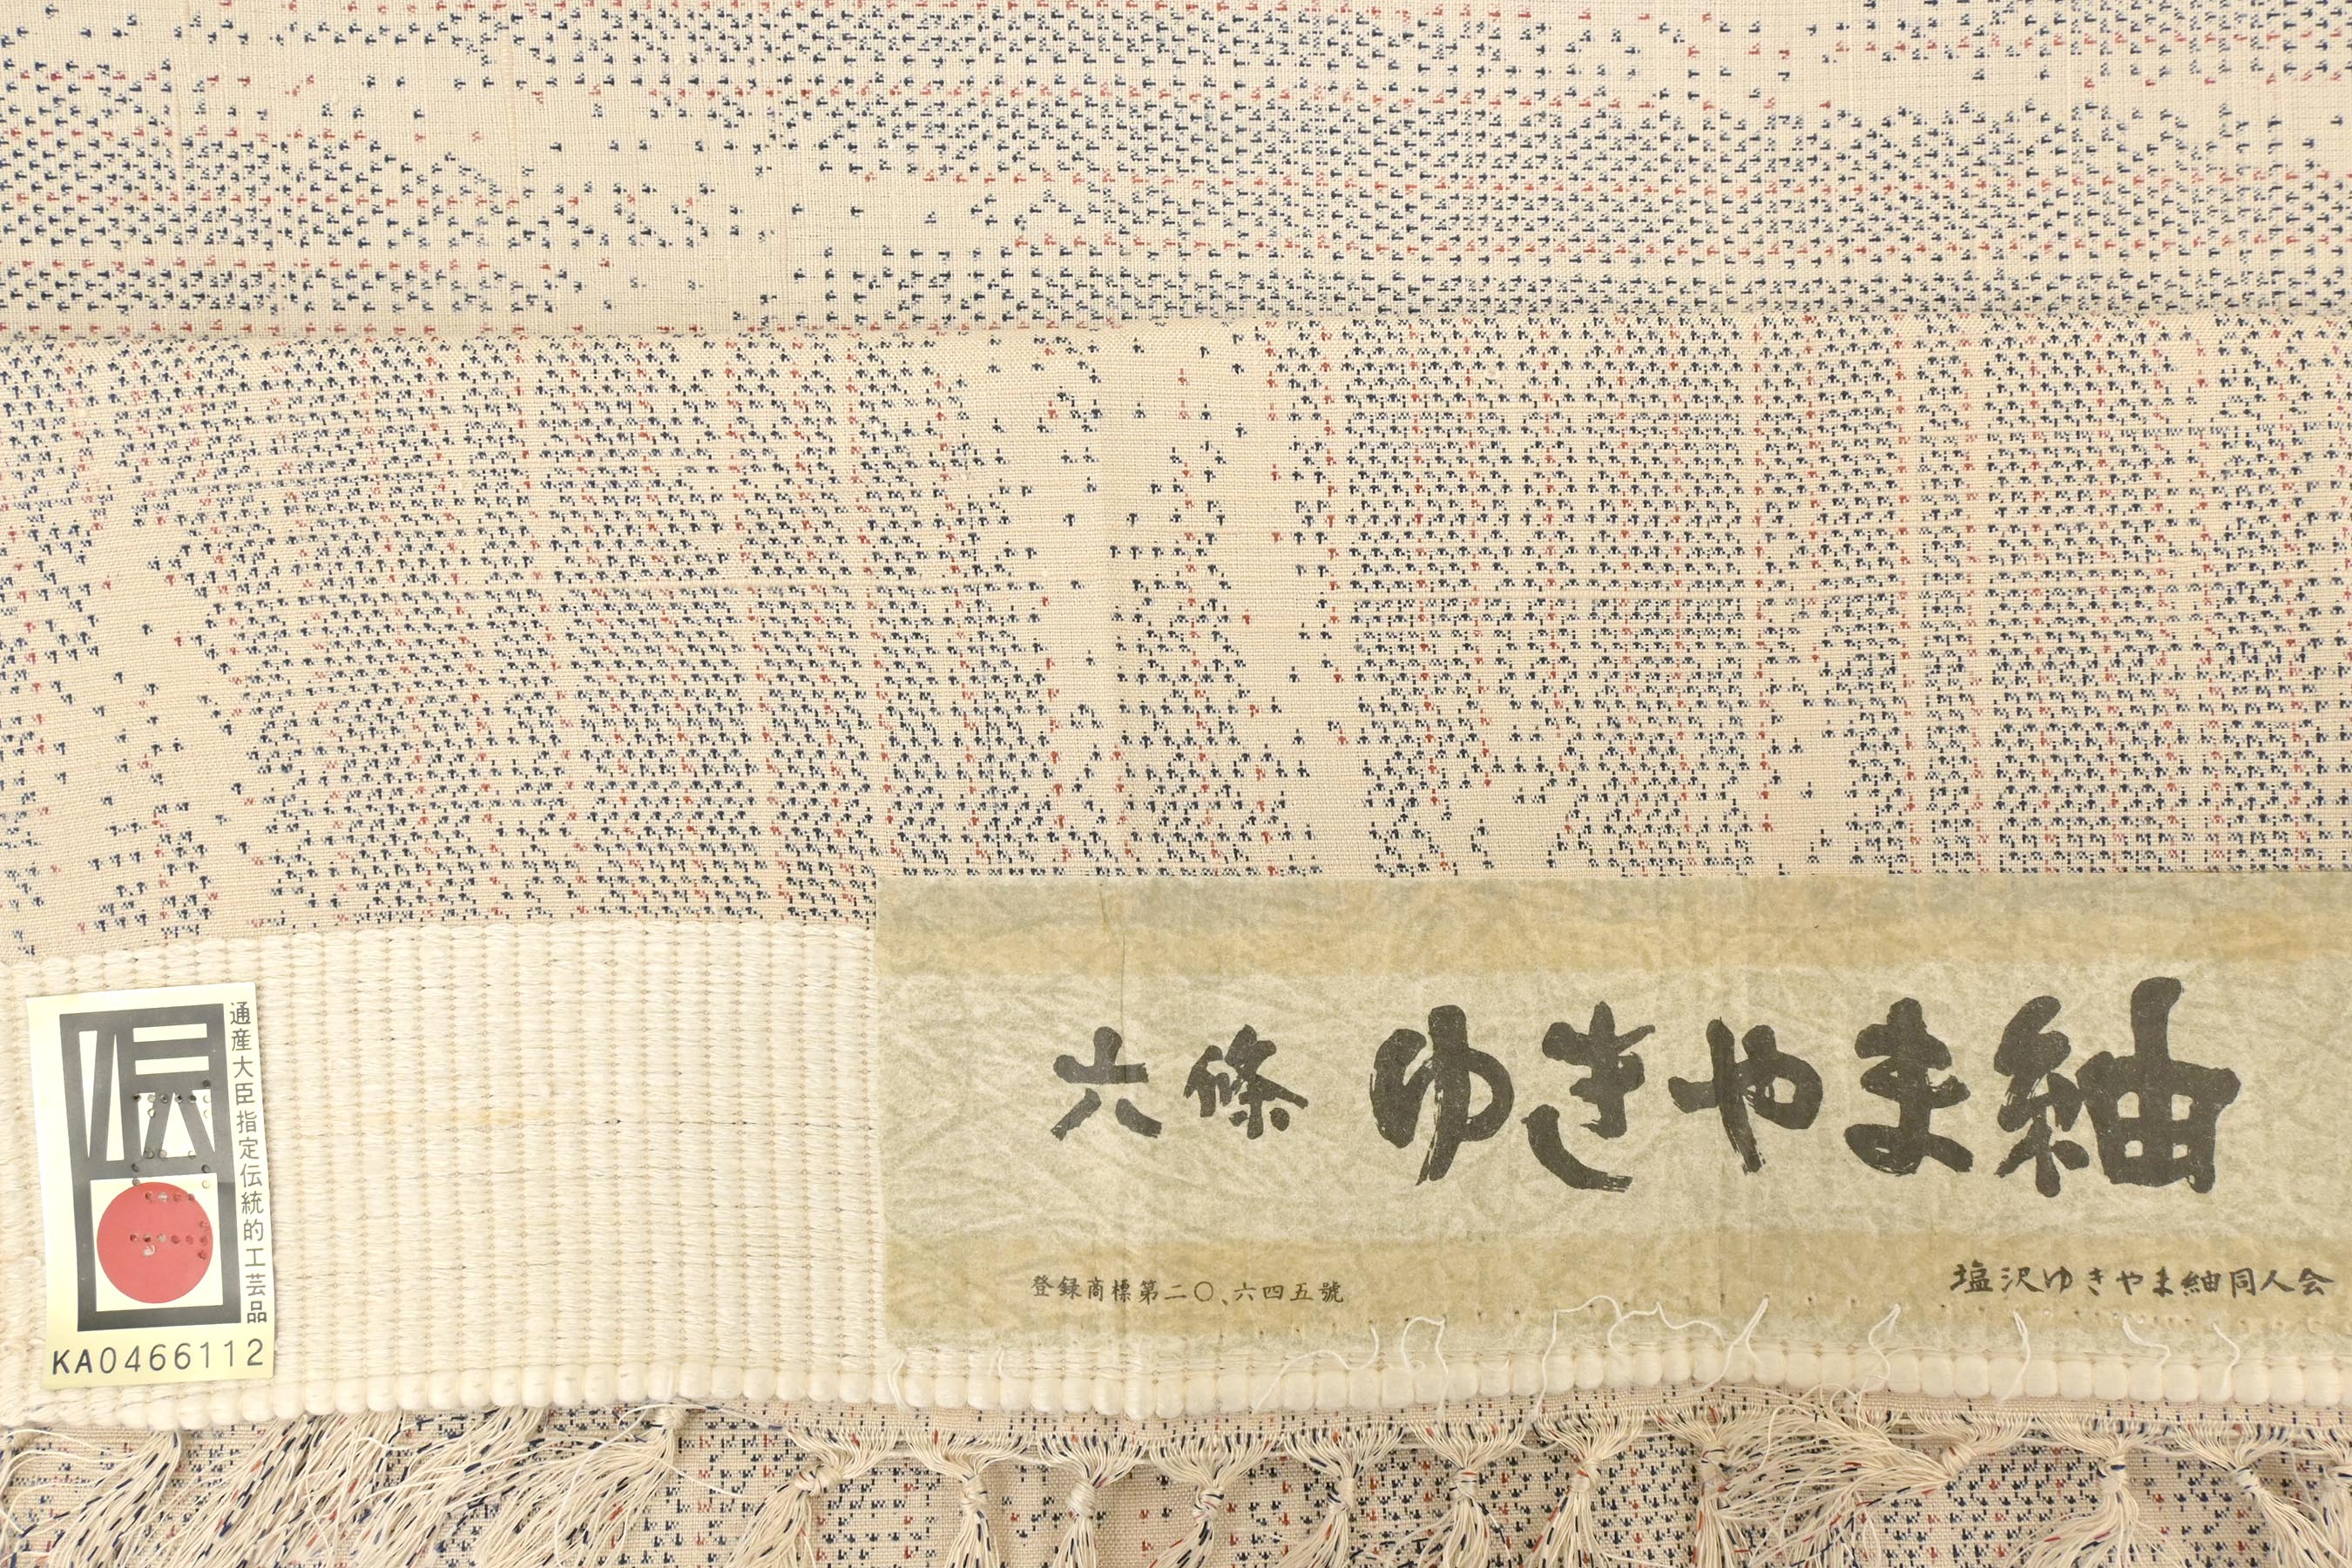 伝
通産大臣指定伝統的工芸品
KA0466112
六條 ゆきやま紬
登録商標第二〇、六四五號
塩沢ゆきやま紬同人会